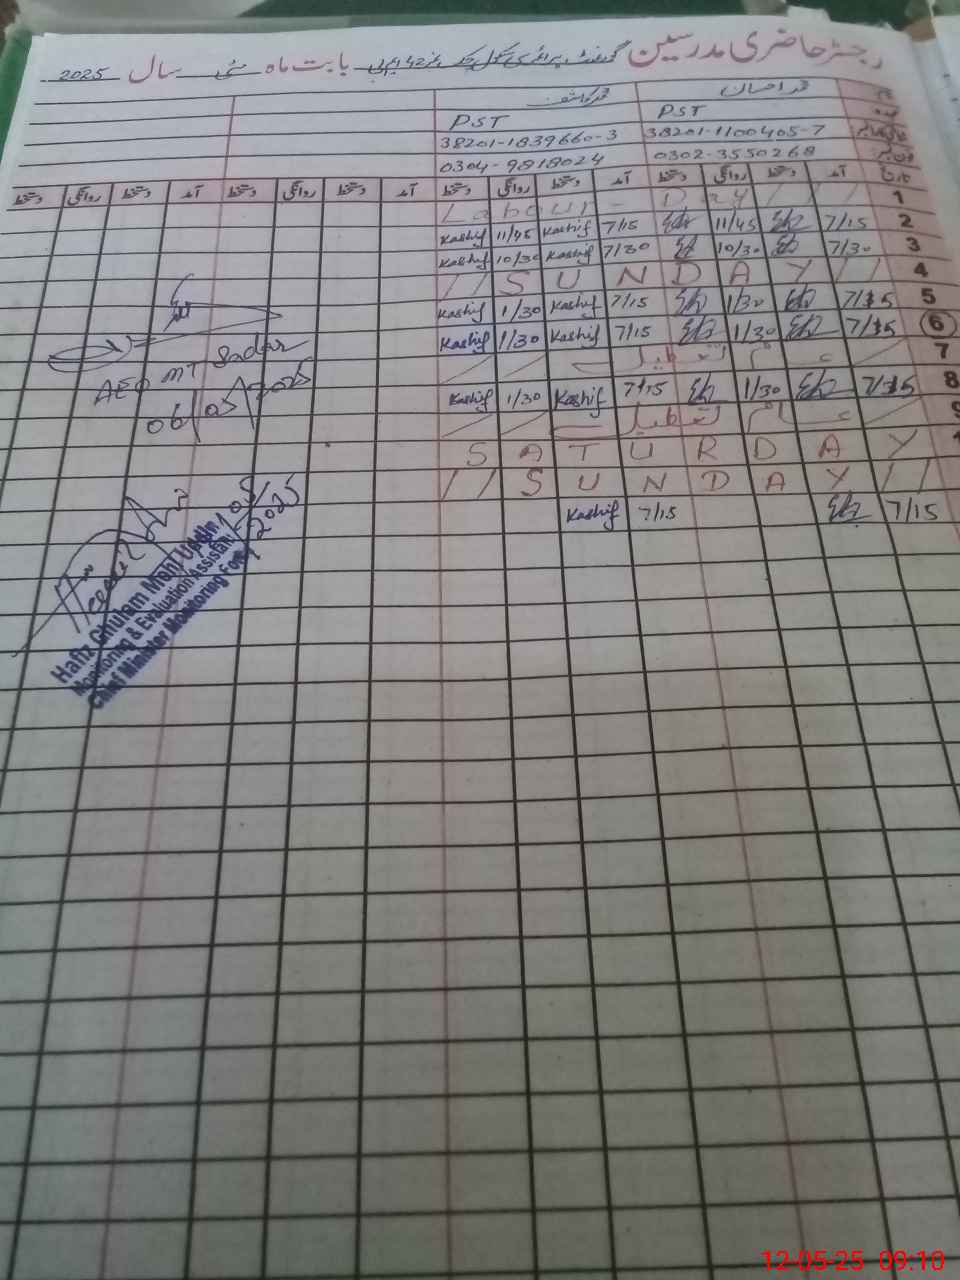 رجسٹر حاضری مدرسین گورنمنٹ پرائمری سکول چک نمبر 42 ایم بی بابت ماہ مئی سال 2025
محمد احسان محمد کاشف
PST PST
38201-1100405-7 38201-1839660-3
0302-3550268 0304-9818024
تاریخ آمد دستخط روانگی دستخط آمد دستخط روانگی دستخط آمد دستخط روانگی دستخط آمد دستخط روانگی دستخط
1 Labour - Day
2 7/15 11/45 7/15 Kashif 11/45 Kashif
3 7/30 10/30 7/30 Kashif 10/30 Kashif
4 // SUNDAY //
5 7/15 1/30 7/15 Kashif 1/30 Kashif
6 7/15 1/30 7/15 Kashif 1/30 Kashif
7 عام تعطیل
8 7/15 1/30 7/15 Kashif 1/30 Kashif
9 عام تعطیل
1 SATURDAY
// SUNDAY //
7/15 7/15 Kashif
AEO MT Sadar
06/05/2025
05/2025
Hafiz Ghulam Mohi Uddin
Monitoring & Evaluation Assistant
Chief Minister Monitoring Force
12-05-25 09:10